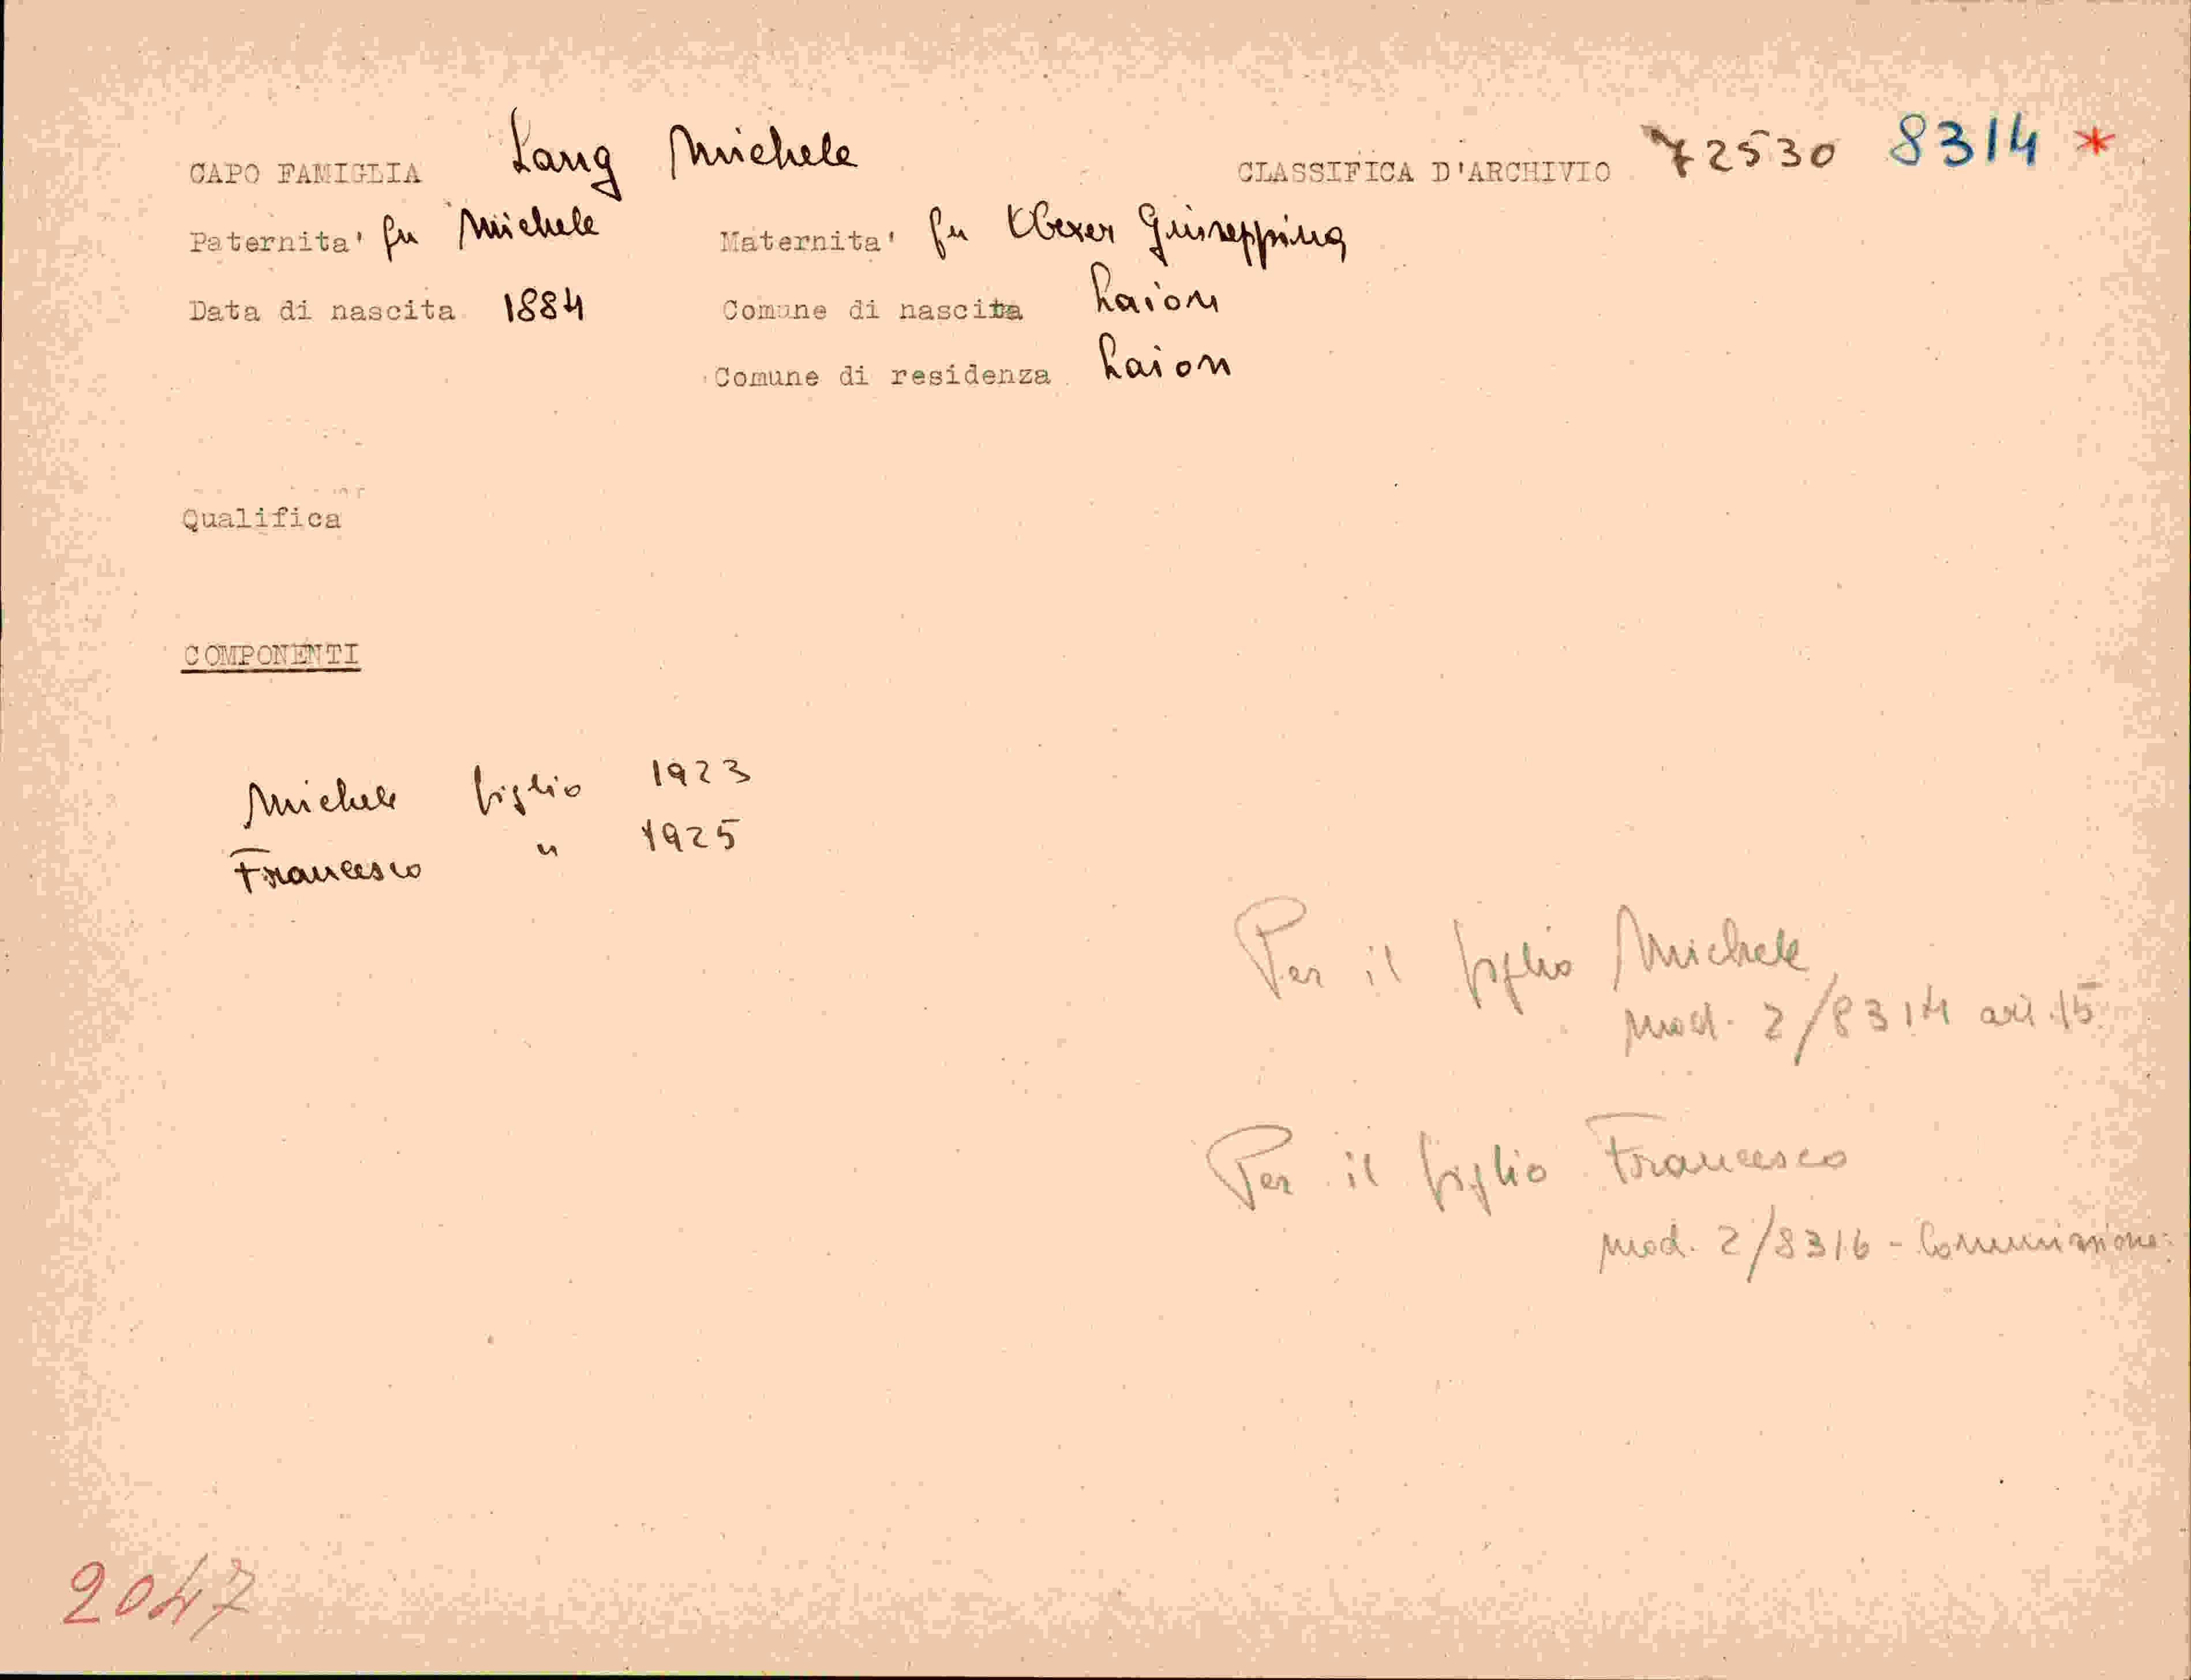 CAPO FAMIGLIA Lang Michele CLASSIFICA D'ARCHIVIO 72530 8314 *
Paternita' fu Michele Maternita' fu Obexer Giuseppina
Data di nascita 1884 Comune di nascita Laion
Comune di residenza Laion
Qualifica
COMPONENTI
Michele figlio 1923
Francesco " 1925
Per il figlio Michele
mod. 2/8314 art. 15
Per il figlio Francesco
mod. 2/8316 - Commissione
2047